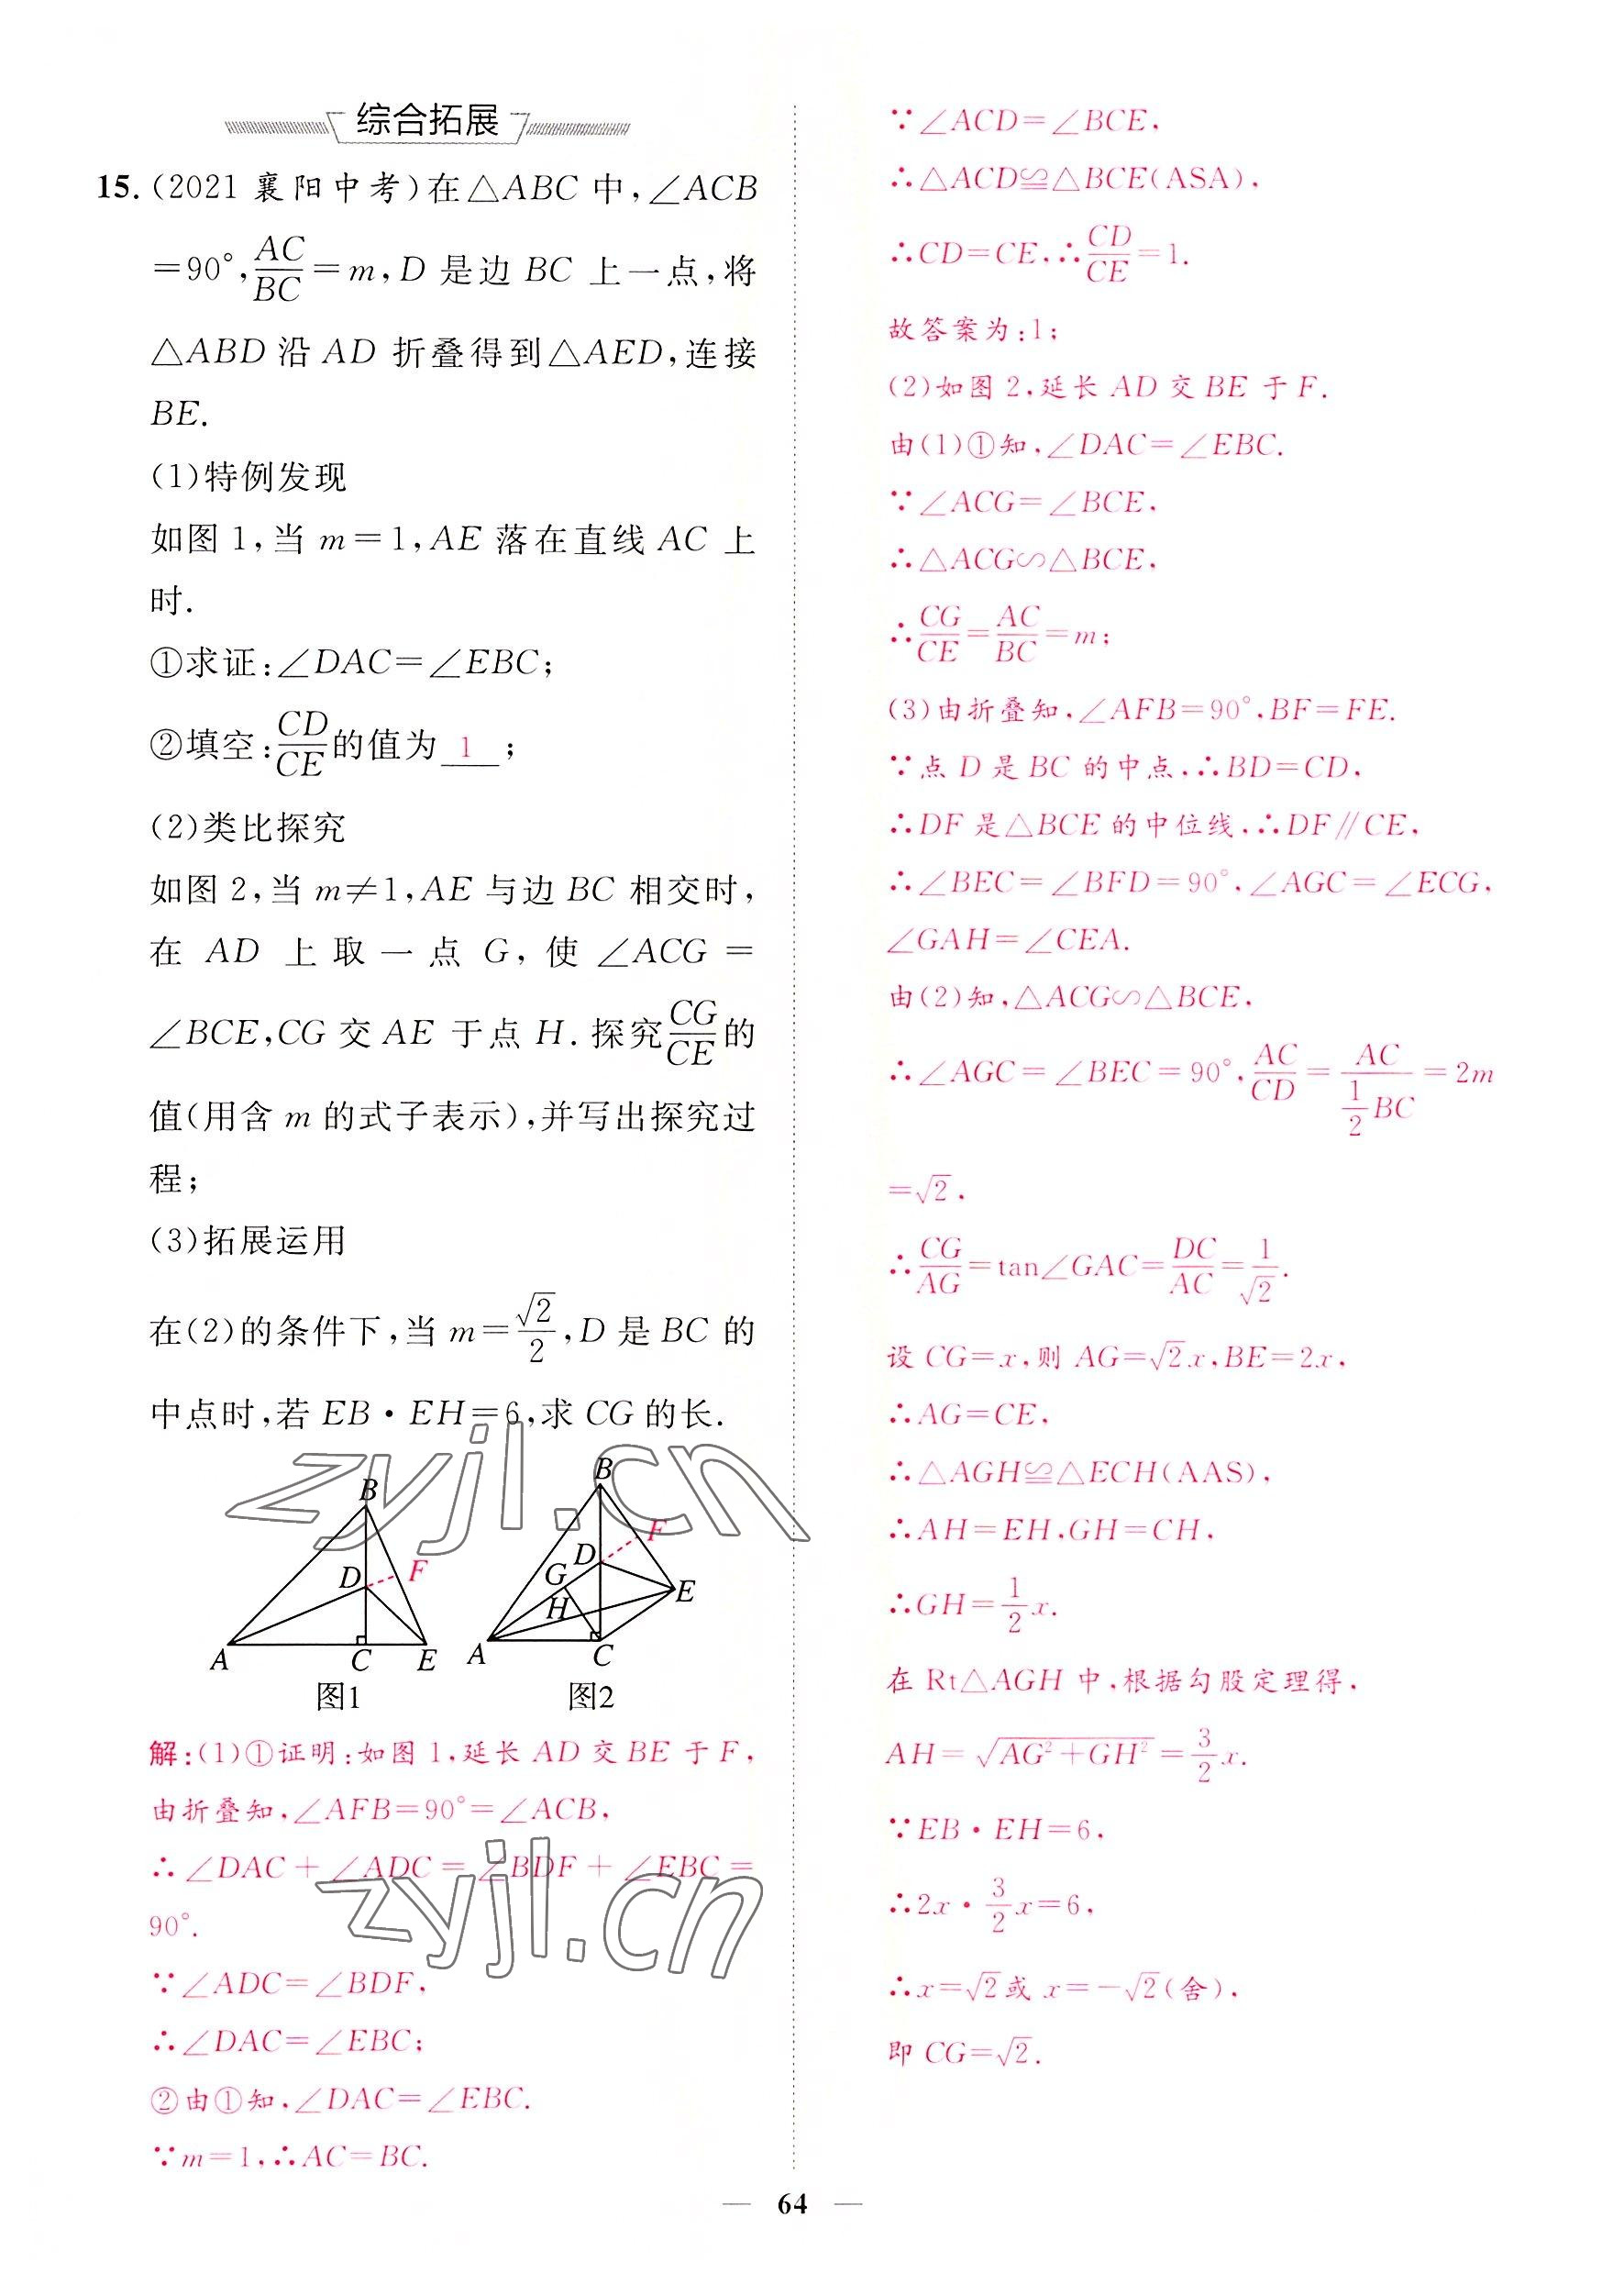 综合拓展
15.(2021襄阳中考)在△ABC中,∠ACB
=90°,AC/BC=m,D是边BC上一点,将
△ABD沿AD折叠得到△AED,连接
BE.
(1)特例发现
如图1,当m=1,AE落在直线AC上
时.
①求证:∠DAC=∠EBC;
②填空:CD/CE的值为 1 ;
(2)类比探究
如图2,当m≠1,AE与边BC相交时,
在AD上取一点G,使∠ACG=
∠BCE,CG交AE于点H.探究CG/CE的
值(用含m的式子表示),并写出探究过
程;
(3)拓展运用
在(2)的条件下,当m=√2/2,D是BC的
中点时,若EB·EH=6,求CG的长.
B
D
F
A
C
E
图1
B
D
F
G
H
E
A
C
图2
zyjl.cn
解:(1)①证明:如图1,延长AD交BE于F,
由折叠知,∠AFB=90°=∠ACB,
∴∠DAC+∠ADC=∠BDF+∠EBC=
90°.
∵∠ADC=∠BDF,
∴∠DAC=∠EBC;
②由①知,∠DAC=∠EBC.
∵m=1,∴AC=BC.
zyjl.cn
∵∠ACD=∠BCE,
∴△ACD≌△BCE(ASA),
∴CD=CE,∴CD/CE=1.
故答案为:1;
(2)如图2,延长AD交BE于F.
由(1)①知,∠DAC=∠EBC.
∵∠ACG=∠BCE,
∴△ACG∽△BCE,
∴CG/CE=AC/BC=m;
(3)由折叠知,∠AFB=90°,BF=FE.
∵点D是BC的中点,∴BD=CD,
∴DF是△BCE的中位线,∴DF∥CE,
∴∠BEC=∠BFD=90°,∠AGC=∠ECG,
∠GAH=∠CEA.
由(2)知,△ACG∽△BCE,
∴∠AGC=∠BEC=90°,AC/CD=AC/(1/2 BC)=2m
=√2.
∴CG/AG=tan∠GAC=DC/AC=1/√2.
设CG=x,则AG=√2x,BE=2x,
∴AG=CE,
∴△AGH≌△ECH(AAS),
∴AH=EH,GH=CH,
∴GH=1/2 x.
在Rt△AGH中,根据勾股定理得,
AH=√(AG²+GH²)=3/2 x.
∵EB·EH=6,
∴2x·3/2 x=6,
∴x=√2或x=-√2(舍),
即CG=√2.
— 64 —